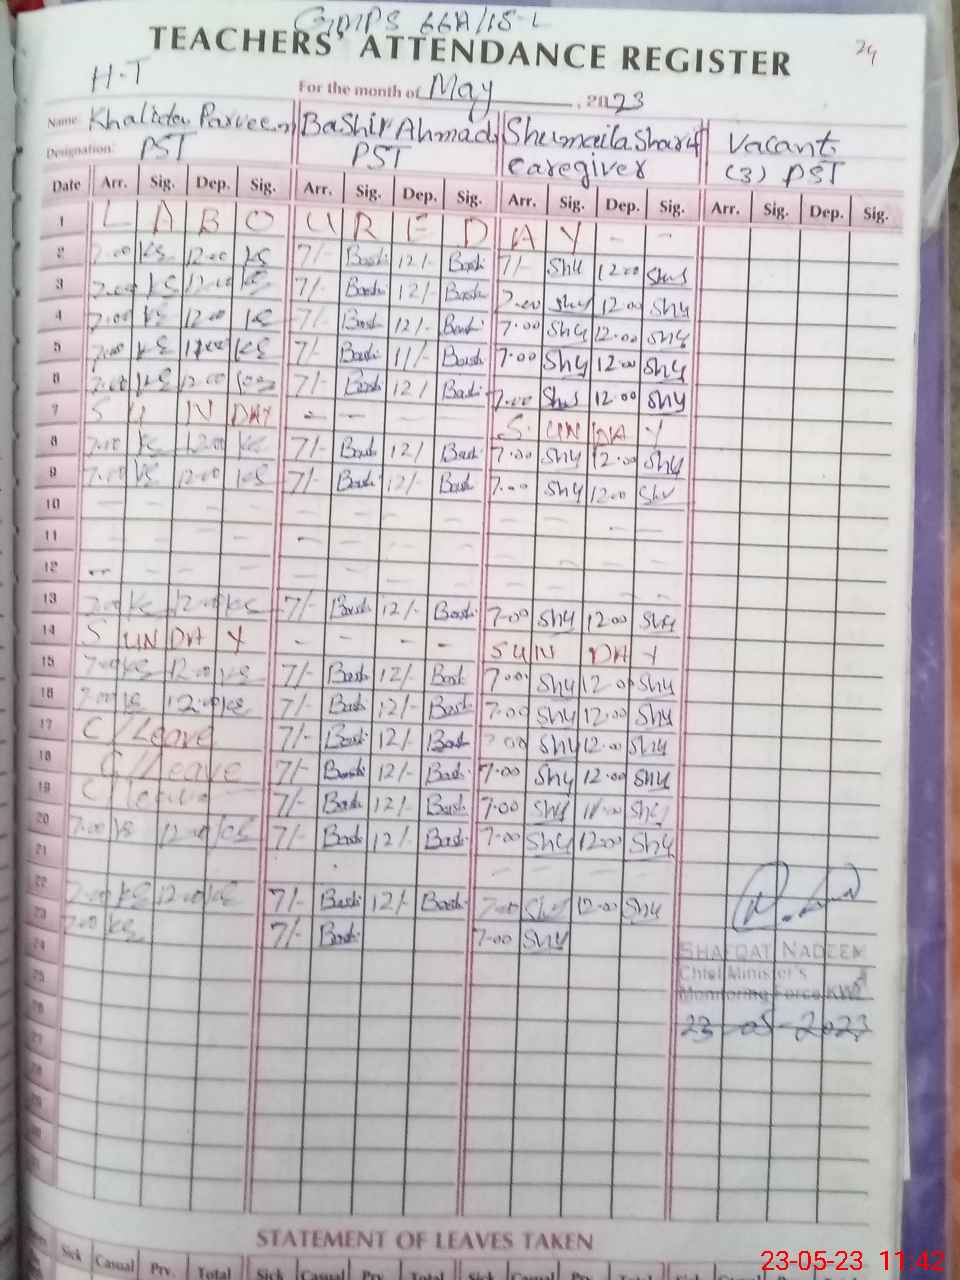 GMPS 66A/15-L
TEACHERS' ATTENDANCE REGISTER
24
H-T
For the month of May, 2023
Name: Khalida Parveen Bashir Ahmad Shumaila Sharif Vacant
Designation: PST PST Caregiver (3) PST
Date Arr. Sig. Dep. Sig. Arr. Sig. Dep. Sig. Arr. Sig. Dep. Sig. Arr. Sig. Dep. Sig.
1 L A B O U R E D A Y - -
2 7.00 KS 12.00 KS 7/- Bash 12/- Bash 7/- Shy 12.00 Shus
3 7.00 KS 12.00 KS 7/- Bash 12/- Bash 7.00 Shy 12.00 Shy
4 7.00 KS 12.00 KS 7/- Bash 12/- Bash 7.00 Shy 12.00 Shy
5 7.00 KS KS 7/- Bash 11/- Bash 7.00 Shy 12.00 Shy
6 7.00 KS 12.00 7/- Bash 12/ Bash 7.00 Shus 12.00 Shy
7 S U N DAY - - - S UN DA Y
8 7.00 KS 12.00 KS 7/- Bash 12/ Bash 7.00 Shy 12.00 Shy
9 7.00 KS 12.00 KS 7/- Bash 12/- Bash 7.00 Shy 12.00 Shy
10 - - - - - - - - - - - -
11 - - - - - - - - - - - -
12 - - - - - - - - - - - -
13 7.00 KS 12.00 KS 7/- Bash 12/- Bash 7.00 Shy 12.00 Shy
14 S UN DA Y - - - - S UN DA Y
15 7.00 KS 12.00 KS 7/- Bash 12/- Bash 7.00 Shy 12.00 Shy
16 7.00 KS 12.00 KS 7/- Bash 12/- Bash 7.00 Shy 12.00 Shy
17 C/Leave 7/- Bash 12/- Bash 7.00 Shy 12.00 Shy
18 C/Leave 7/- Bash 12/- Bash 7.00 Shy 12.00 Shy
19 C/leave 7/- Bash 12/- Bash 7.00 Shy Shy
20 7.00 KS 12.00 KS 7/- Bash 12/- Bash 7.00 Shy 12.00 Shy
21 - - - -
22 7.00 KS 12.00 KS 7/- Bash 12/- Bash 7.00 Shy 12.00 Shy
23 7.00 KS 7/- Bash 7.00 Shy
24
SHAFQAT NADEEM
25
Chief Minister's
Monitoring Force KWL
26
23-05-2023
27
28
29
30
31
STATEMENT OF LEAVES TAKEN
Sick Casual Prv. Total Sick Casual Prv. Total Sick Casual Prv. Total Sick Casual
23-05-23 11:42